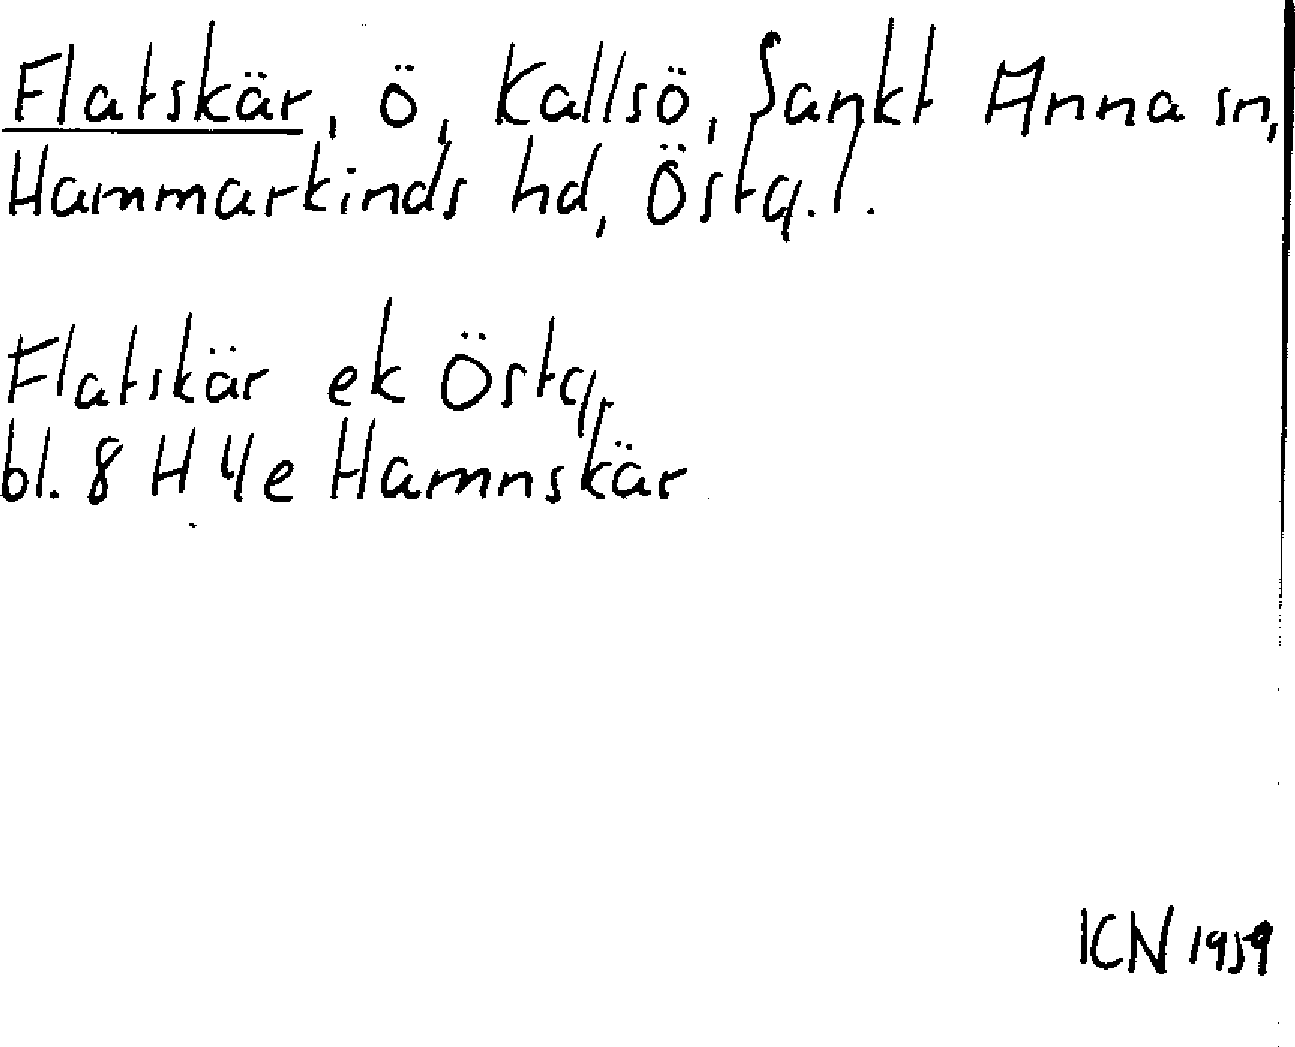 Flatskär, ö, Kallsö, Sankt Anna sn,
Hammarkinds hd, Östg.l.
Flatskär ek Östg,
bl. 8 H 4e Hamnskär
ICN 1959